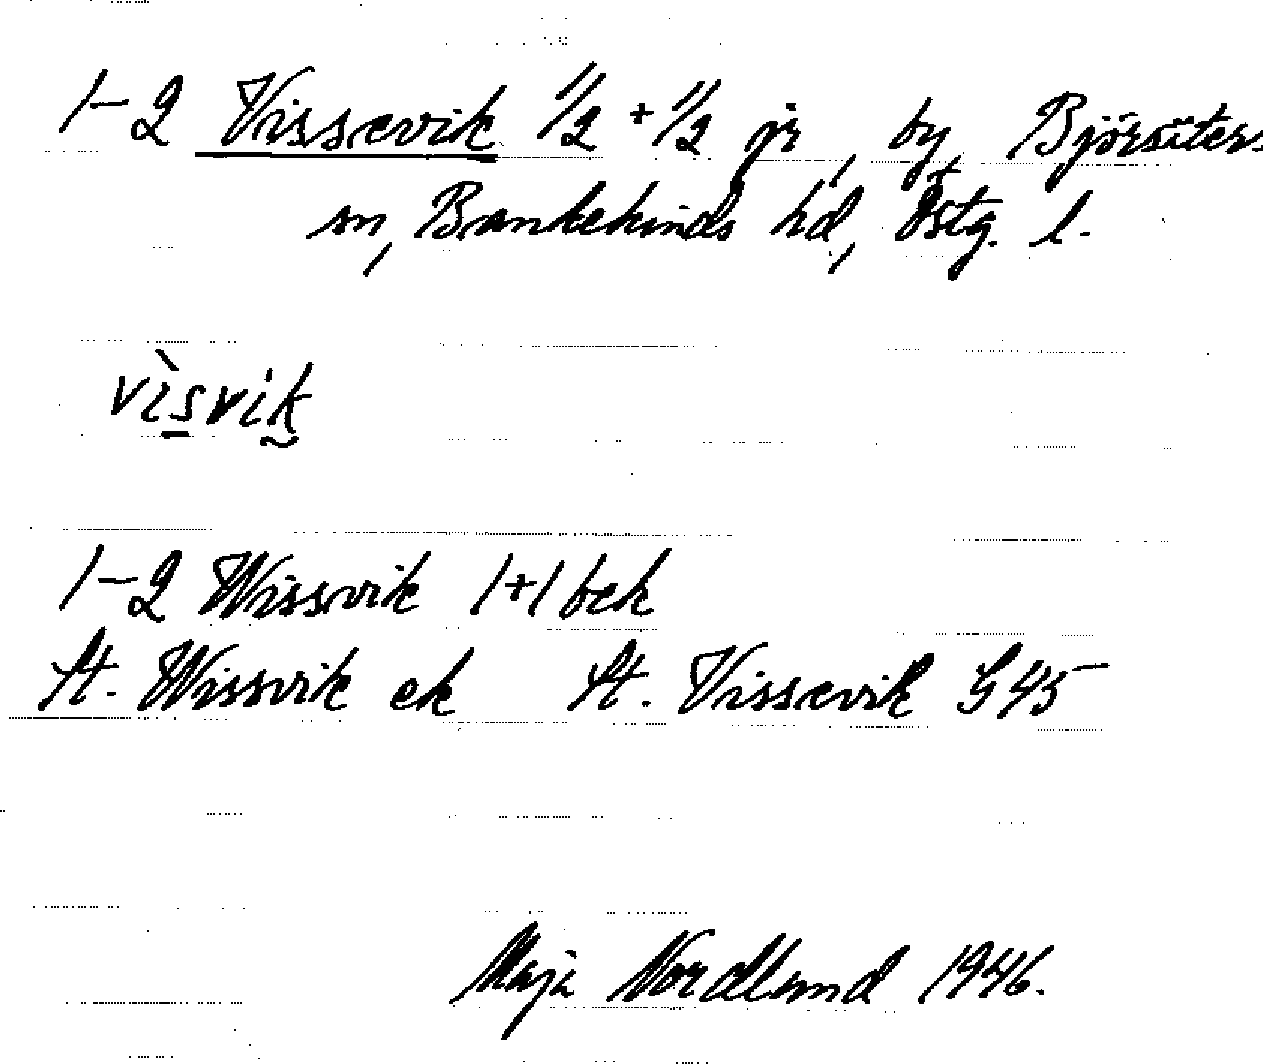 1-2 Vissevik 1/2 + 1/2 gr, by Björsäters
sn, Bankekinds hd, Östg. l.
vìsvik
1-2 Wissvik 1+1 bek
St. Wissvik ek St. Vissevik G 45
Maja Nordlund 1946.